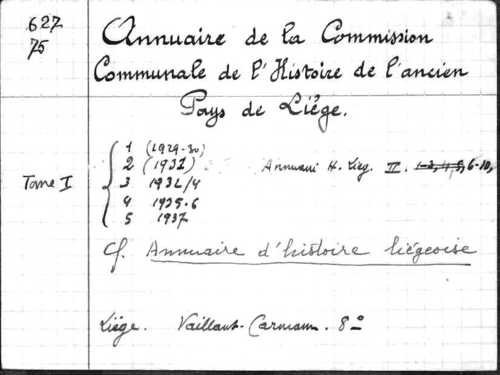 627
75
Annuaire de la Commission
Communale de l'Histoire de l'ancien
Pays de Liége.
Tome I
1 (1929-30)
2 (1931)
3 1932/4
4 1935-6
5 1937
Annuai H. Lieg. II. 6-10,
Cf. Annuaire d'histoire liégeoise
Liége. Vaillant-Carmann. 8º